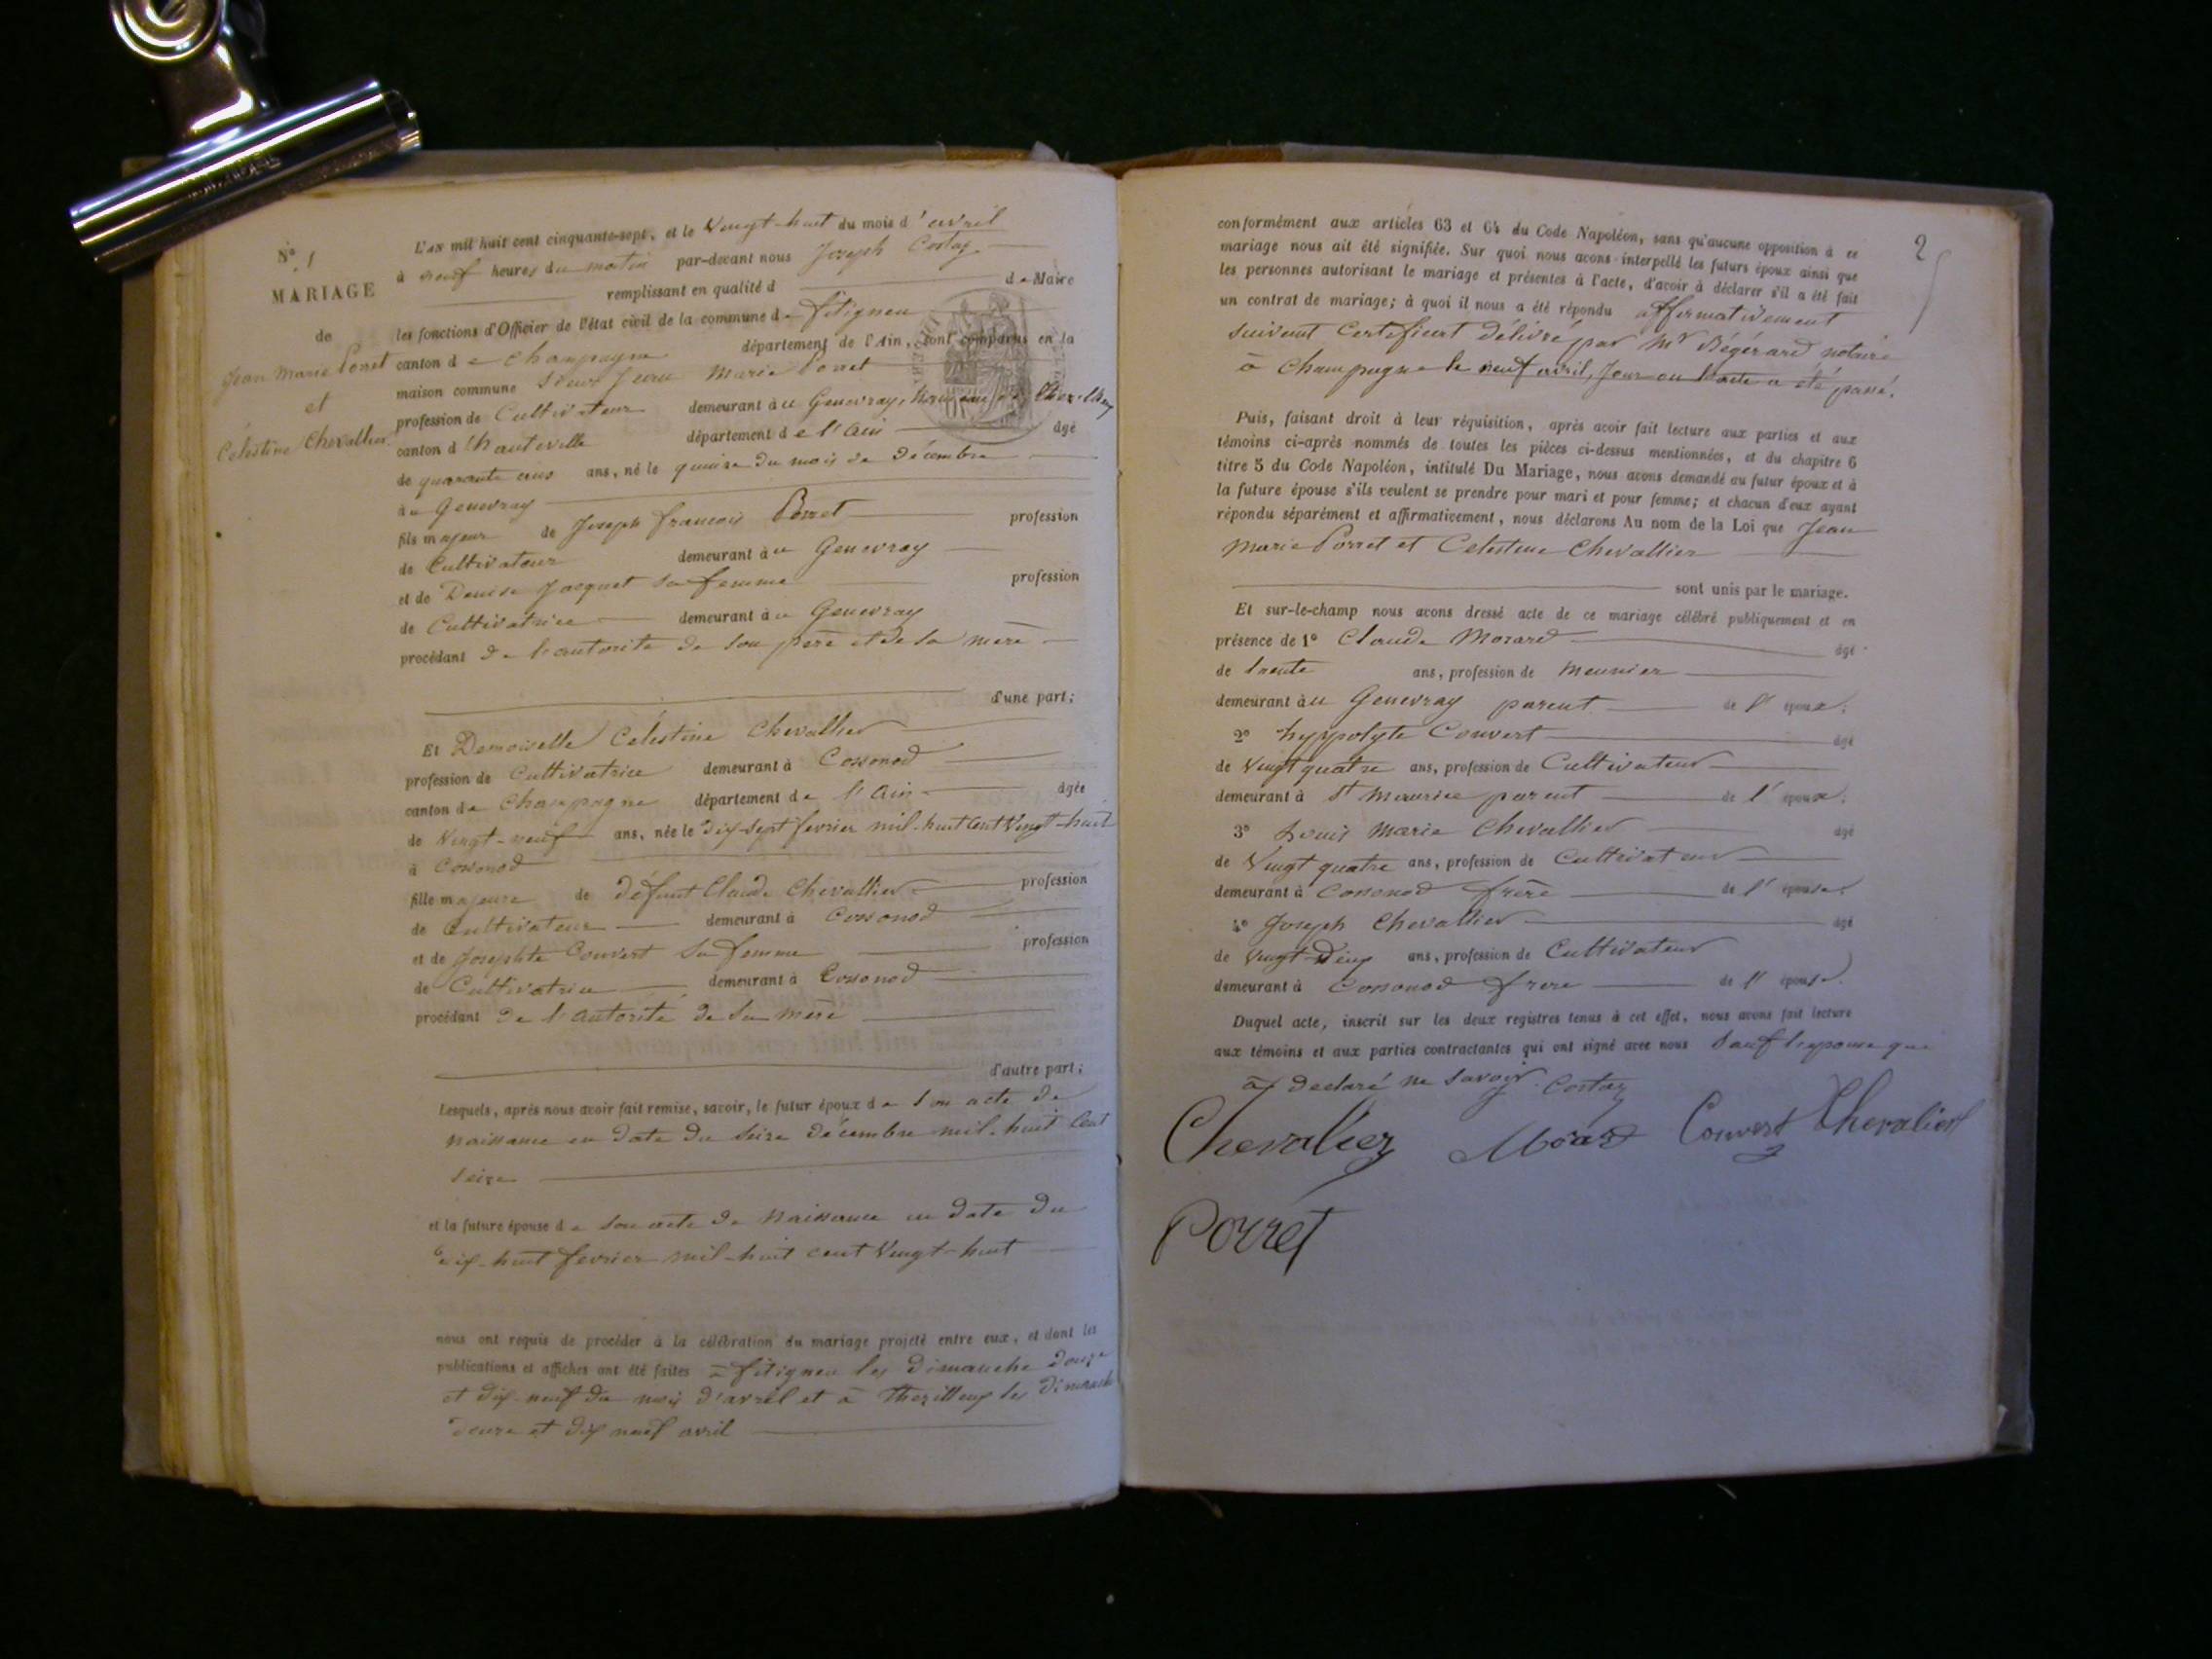 N° 1
MARIAGE
de
Jean Marie Porret
et
Célestine Chevallier
L'AN mil huit cent cinquante-sept, et le Vingt-huit du mois d'avril
à neuf heures du matin par-devant nous Joseph Costaz
remplissant en qualité d de Maire
les fonctions d'Officier de l'état civil de la commune de fitignieu
canton de Champagne département de l'Ain, sont comparus en la
maison commune Sieur Jean Marie Porret
profession de Cultivateur demeurant au Genevray, hameau de
canton d'hauteville département de l'Ain âgé
de quarante ans, né le quinze du mois de Décembre
au Genevray
fils majeur de Joseph francois Porret profession
de Cultivateur demeurant au Genevray
et de Denise Jacquet sa femme profession
de Cultivatrice demeurant au Genevray
procédant de l'autorité de son père et de sa mère
d'une part;
Et Demoiselle Célestine Chevallier
profession de Cultivatrice demeurant à Cossonod
canton de Champagne département de l'Ain âgée
de Vingt-neuf ans, née le dix-sept fevrier mil-huit cent Vingt-huit
à Cossonod
fille majeure de défunt Claude Chevallier profession
de Cultivateur demeurant à Cossonod
et de Josephte Convert sa femme profession
de Cultivatrice demeurant à Cossonod
procédant de l'autorité de sa mère
d'autre part;
Lesquels, après nous avoir fait remise, savoir, le futur époux de son acte de
naissance en date du seize décembre mil-huit cent
seize
et la future épouse de son acte de naissance en date du
dix-huit fevrier mil-huit cent Vingt-huit
nous ont requis de procéder à la célébration du mariage projeté entre eux, et dont les
publications et affiches ont été faites à fitignieu les dimanche douze
et dix-neuf du mois d'avril et à Thezillieux les dimanche
douze et dix neuf avril
2
conformément aux articles 63 et 64 du Code Napoléon, sans qu'aucune opposition à ce
mariage nous ait été signifiée. Sur quoi nous avons interpellé les futurs époux ainsi que
les personnes autorisant le mariage et présentes à l'acte, d'avoir à déclarer s'il a été fait
un contrat de mariage; à quoi il nous a été répondu affirmativement
suivant Certificat délivré par Mr Bégérard notaire
à Champagne le neuf avril, Jour ou l'acte a été passé.
Puis, faisant droit à leur réquisition, après avoir fait lecture aux parties et aux
témoins ci-après nommés de toutes les pièces ci-dessus mentionnées, et du chapitre 6
titre 5 du Code Napoléon, intitulé Du Mariage, nous avons demandé au futur époux et à
la future épouse s'ils veulent se prendre pour mari et pour femme; et chacun d'eux ayant
répondu séparément et affirmativement, nous déclarons Au nom de la Loi que Jean
Marie Porret et Celestine Chevallier
sont unis par le mariage.
Et sur-le-champ nous avons dressé acte de ce mariage célébré publiquement et en
présence de 1° Claude Morard âgé
de trente ans, profession de Meunier
demeurant au Genevray parent de l'époux;
2° hyppolyte Convert âgé
de Vingt quatre ans, profession de Cultivateur
demeurant à St Maurice parent de l'époux;
3° Louis Marie Chevallier âgé
de Vingt quatre ans, profession de Cultivateur
demeurant à Cossonod frère de l'épouse;
4° Joseph Chevallier âgé
de Vingt-Deux ans, profession de Cultivateur
demeurant à Cossonod frere de l'épouse.
Duquel acte, inscrit sur les deux registres tenus à cet effet, nous avons fait lecture
aux témoins et aux parties contractantes qui ont signé avec nous Sauf lepouse que
a déclaré ne savoir. Costaz
Chevallier Convert Chevalier
Porret